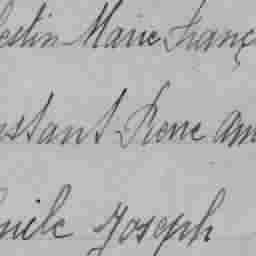 estin Marie Franç
nstant Pierre am
mile Joseph